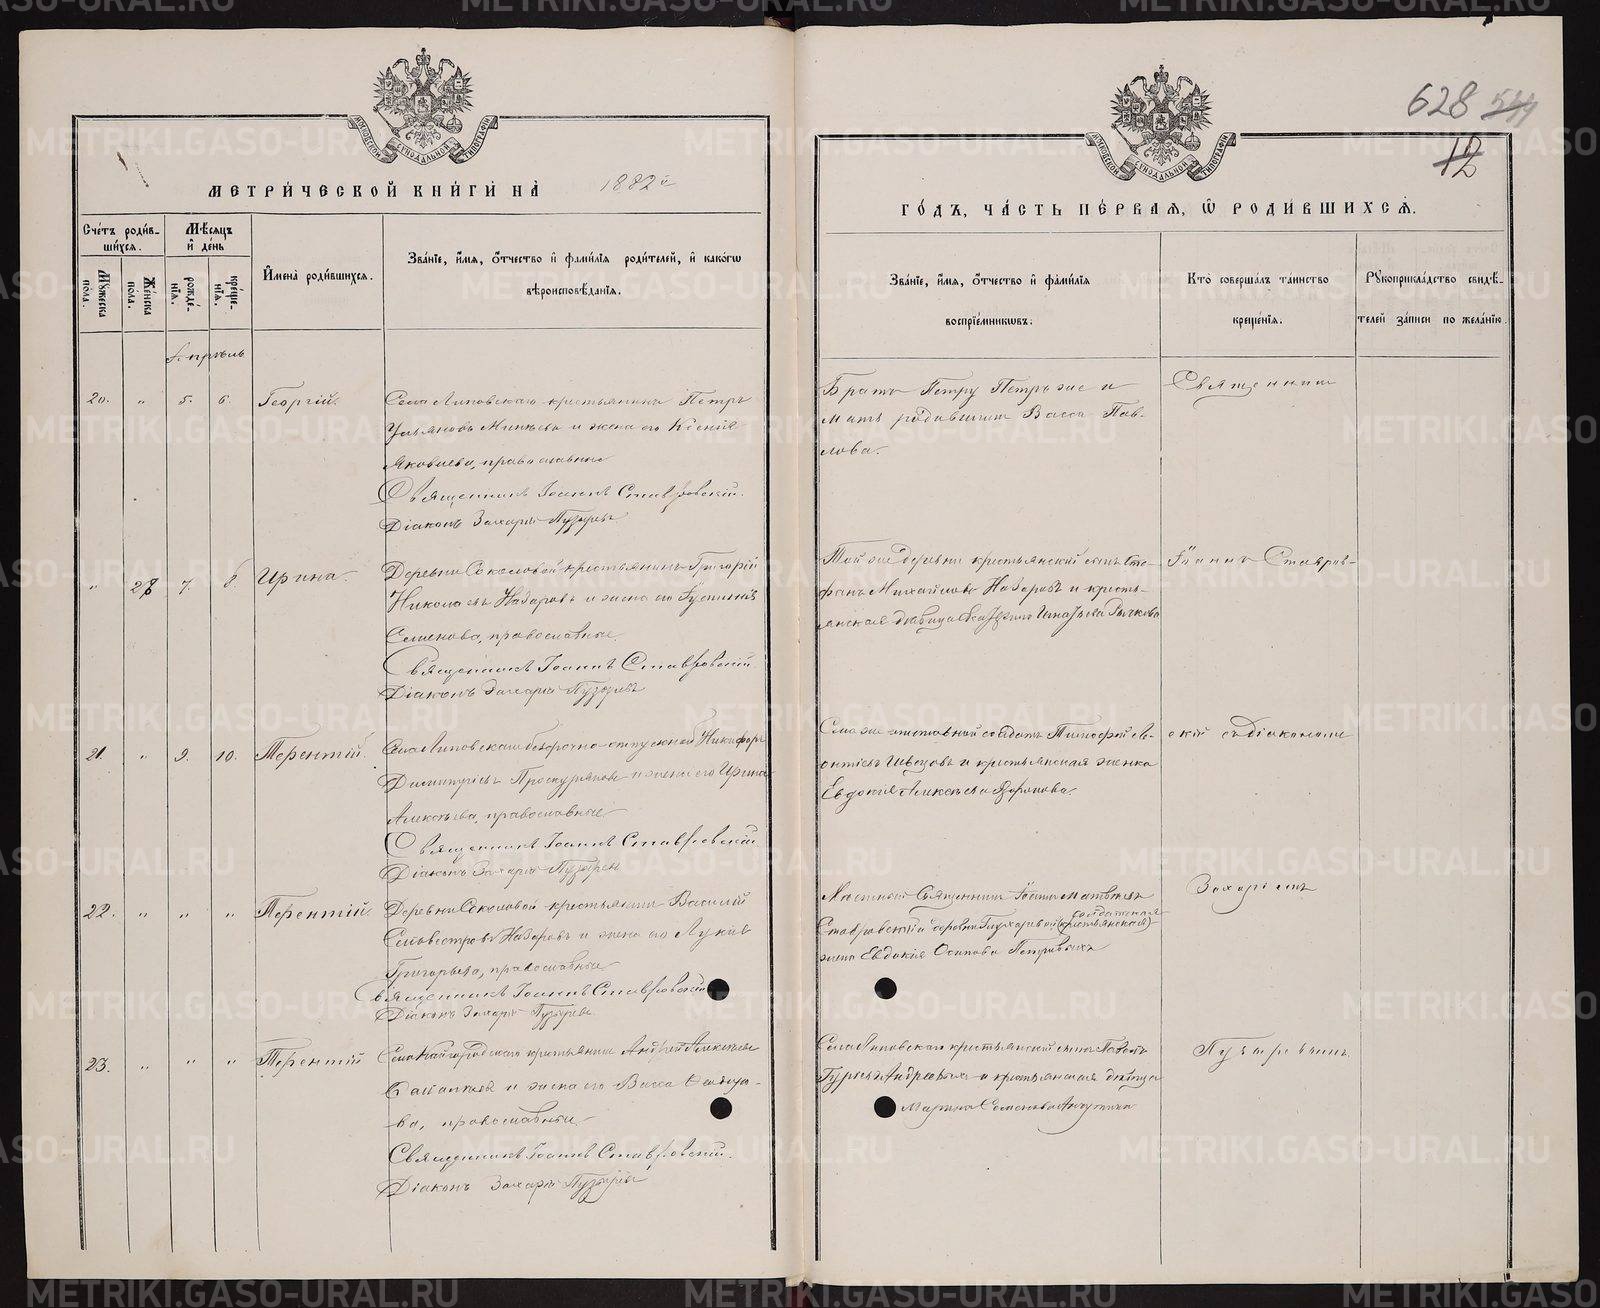 628 544
12
МЕТРИЧЕСКОЙ КНИГИ НА 1882й
ГОДЪ, ЧАСТЬ ПЕРВАЯ, Ѽ РОДИВШИХСЯ.
Счетъ родившихся.
Мужеска пола.
Женска пола.
Мѣсяцъ и день
рожденія.
крещенія.
Имена родившихся.
Званіе, имя, отчество и фамилія родителей, и какогѡ
вѣроисповѣданія.
Званіе, имя, отчество и фамилія
воспріемниковъ:
Кто совершалъ таинство
крещенія.
Рукоприкладство свидѣ-
телей записи по желанію.
Апрѣль
20. " 5. 6. Георгій.
Села Липовскаго крестьянинъ Петръ
Ульяновъ и жена его Ксенія
Яковлева, православные
Священникъ Іоаннъ Ставровскій.
Діаконъ Захарій Пузырев
Братъ Петру Петръ же и
мать родившаго Васса Пав-
лова.
Священник
" 7. 8. Ирина.
Деревни Соколовой крестьянинъ Григорій
Николаевъ Назаровъ и жена его Іустинія
Семенова, православные.
Священникъ Іоаннъ Ставровскій
Діаконъ Захарій Пузырев
Той же деревни крестьянскій сынъ Сте-
фанъ Михайловъ Назаровъ и кресть-
янская дѣвица Игнатьева Рычкова
Іоаннъ Ставров-
21. " 9. 10. Терентій.
Села Липовскаго безсрочно-отпускной Никифоръ
Димитріевъ Проскуряковъ и жена его Ирина
Алексѣева, православные
Священникъ Іоаннъ Ставровскій
Діаконъ Захарій Пузырев
Села же отставной солдатъ Тимофей Ле-
онтіевъ Швецовъ и крестьянская женка
Евдокія Алексѣева
скій съ діакономъ
22. " " " Терентій.
Деревни Соколовой крестьянинъ Василій
Сильвестровъ Назаровъ и жена его Лукія
Григорьева, православные
Священникъ Іоаннъ Ставровскій
Діаконъ Захарій Пузырев
Мѣстный Священникъ Іоаннъ Матвѣевъ
солдатская
Ставровскій и деревни Глухаревой (крестьянская)
жена Евдокія Осипова Петровыхъ
Захаріемъ
23. " " " Терентій
Села Кайгородскаго крестьянинъ Андрей Алексѣевъ
и жена его Васса
ва, православные.
Священникъ Іоаннъ Ставровскій.
Діаконъ Захарій Пузырев
Села Липовскаго крестьянскій сынъ Павелъ
и крестьянская дѣвица
Марина Семенова
Пузыревымъ.
METRIKI.GASO-URAL.RU